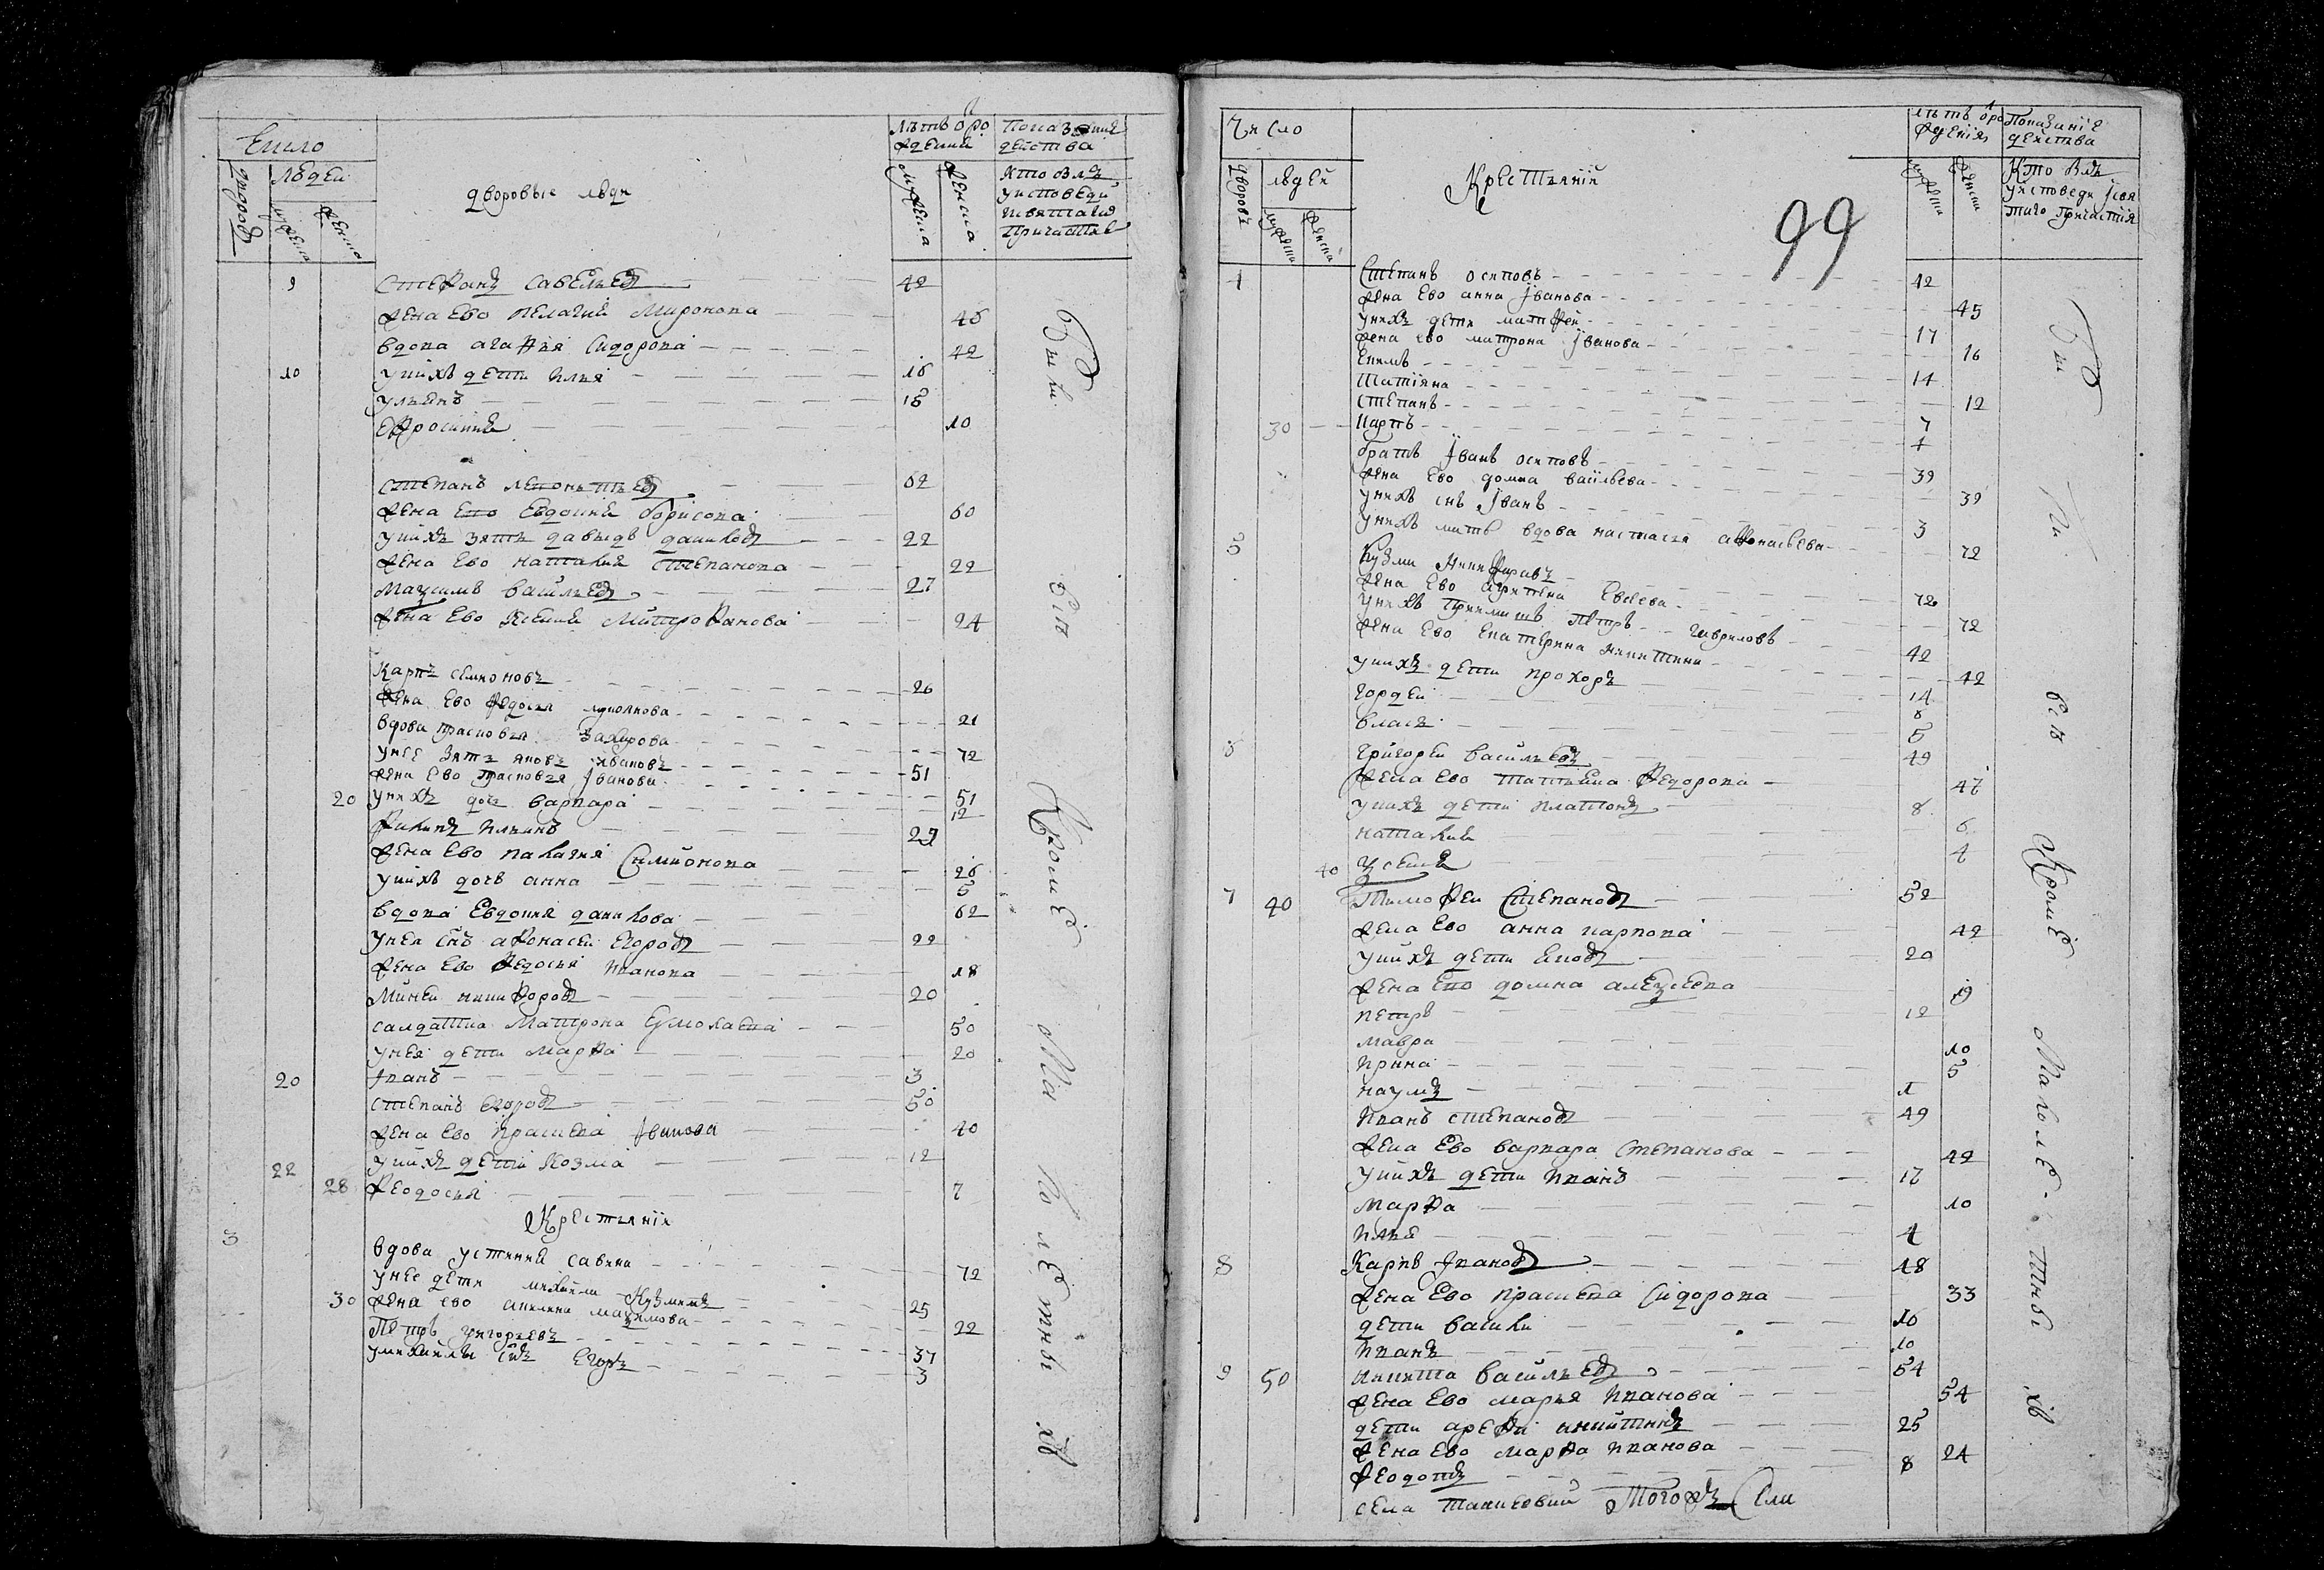 Число
дворовъ
людей
мужеска
женска
дворовые люди
лѣтъ о рождении
мужеска
женска
Показание действа
кто былъ у исповеди и святаго причастия
9 Стефанъ Савельевъ 42
жена ево Пелагия Миронова 45
вдова агафья Сидорова 42
10 у нихъ дети илья 16
ульянъ 15
Ефросинья 10
степанъ леонтьевъ 62
жена ево Евдокия борисова 60
у нихъ зять давыдъ даниловъ 22
жена ево наталия степанова 22
максимъ васильевъ 27
жена ево Ксения Митрофанова 24
карпъ семионовъ 26
жена ево федосья 21
вдова прасковья захарова 72
у нее зять яковъ ивановъ 51
жена ево прасковея Іванова 51
20 у нихъ дочь варвара 12
Филипъ ильинъ 27
жена ево палагия Симионова 26
у нихъ дочь анна 5
вдова Евдокия данилова 62
у нея снъ афонасеи Егоровъ 22
жена ево Федосья иванова 18
Миней никифоровъ 20
салдатка Матрона Ермолаева 50
у нея дети марфа 20
20 Іванъ 3
степанъ Егоровъ 50
жена ево прасковя Іванова 40
22 у нихъ дети козма 12
28 Феодосья 7
Крестьянія
3 вдова устиния савина 72
у нее дети михайла Кузминъ 25
30 жена ево акилина максимова 22
Петръ григорьевъ 37
у михайлы снъ Егоръ 3
Были все Кроме Малолетныхъ
Число
дворовъ
людей
мужеска
женска
Крестьяніи
99
лѣтъ о рожденія
мужеска
женска
Показаніе действа
Кто былъ у исповеди и святаго причастия
4 Степанъ осиповъ 42
жена ево анна Іванова 45
у нихъ дети матфей 17
жена ево матрона Іванова 16
Екимъ 14
татияна 12
степанъ 7
30 карпъ 4
братъ Іванъ осиповъ 39
жена ево домна васильева 39
у нихъ снъ Іванъ 3
у нихъ мать вдова настасья афонасьева 72
5 Кузма Никифоровъ 72
жена ево агрипина Евсеева 72
у нихъ приимышъ петръ гавриловъ 42
жена ево Екатерина никитина 42
у нихъ дети прохоръ 14
гордеи 8
власъ 5
григорей васильевъ 49
жена ево татьяна Федорова 47
у нихъ дети платонъ 8
наталия 6
40 Ксения 4
7 40 Тимофеи Степановъ 52
жена ево анна карпова 42
у нихъ дети яковъ 20
жена ево домна алексеева 19
петръ 12
мавра 10
ирина 5
наумъ 1
иванъ степановъ 49
жена ево варвара степанова 42
у нихъ дети иванъ 17
марфа 10
илья 4
8 Карпъ Ивановъ 48
жена ево прасковя Сидорова 33
дети васили 16
иванъ 10
9 50 никита васильевъ 54
жена ево марья иванова 54
дети арефи никитинъ 25
жена ево марфа иванова 24
Феодотъ 8
села
Были все Кроме Малолетныхъ